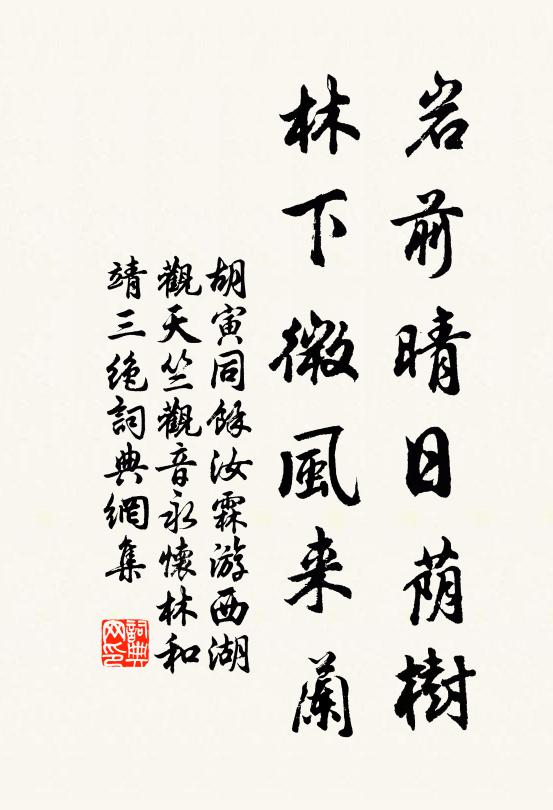 岩前晴日荫樹
林下微風来蘭
胡寅同餘汝霖游西湖
觀天竺觀音永懷林和
靖三絶詞典網集
詞典网印